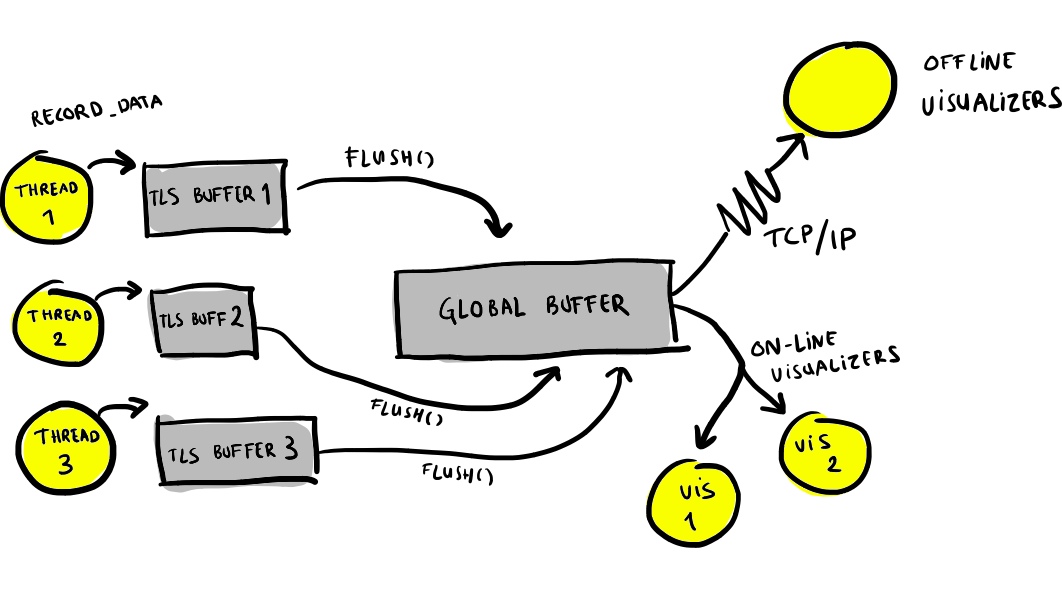 RECORD_DATA
THREAD
1
TLS BUFFER 1
FLUSH()
THREAD
2
TLS BUFF 2
FLUSH()
THREAD
3
TLS BUFFER 3
FLUSH()
GLOBAL BUFFER
TCP/IP
OFFLINE
VISUALIZERS
ON-LINE
VISUALIZERS
VIS
1
VIS
2